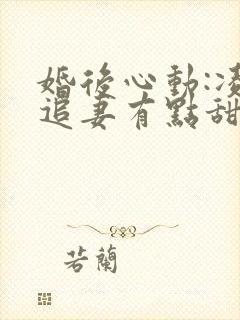 婚後心動:凌
追妻有點甜
若蘭